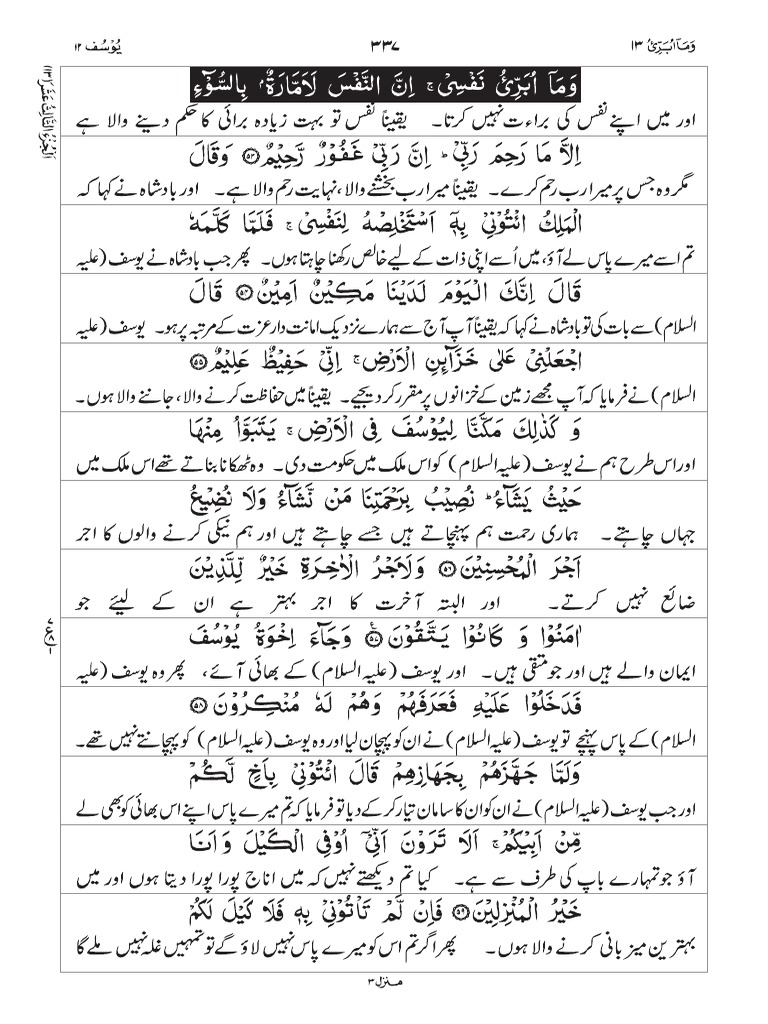 وَمَاۤ اُبَرِّئُ ۱۳ ۳۳۷ يُوۡسُف ۱۲
وَمَاۤ اُبَرِّئُ نَفۡسِىۡ‌ۚ اِنَّ النَّفۡسَ لَاَمَّارَةٌۢ بِالسُّوۡٓءِ
اور میں اپنے نفس کی براءت نہیں کرتا۔ یقیناً نفس تو بہت زیادہ برائی کا حکم دینے والا ہے
اِلَّا مَا رَحِمَ رَبِّىۡ‌ؕ اِنَّ رَبِّىۡ غَفُوۡرٌ رَّحِيۡمٌ‏ ﴿۵۳﴾ وَقَالَ
مگر وہ جس پر میرا رب رحم کرے۔ یقیناً میرا رب بخشنے والا، نہایت رحم والا ہے۔ اور بادشاہ نے کہا کہ
الۡمَلِكُ ائۡتُوۡنِىۡ بِهٖۤ اَسۡتَخۡلِصۡهُ لِنَفۡسِىۡ‌ۚ فَلَمَّا كَلَّمَهٗ
تم اسے میرے پاس لے آؤ، میں اُسے اپنی ذات کے لیے خالص رکھنا چاہتا ہوں۔ پھر جب بادشاہ نے یوسف (علیہ
قَالَ اِنَّكَ الۡيَوۡمَ لَدَيۡنَا مَكِيۡنٌ اَمِيۡنٌ‏ ﴿۵۴﴾ قَالَ
السلام) سے بات کی تو بادشاہ نے کہا کہ یقیناً آپ آج سے ہمارے نزدیک امانت دار عزت کے مرتبہ پر ہو۔ یوسف (علیہ
اجۡعَلۡنِىۡ عَلٰى خَزَآئِنِ الۡاَرۡضِ‌ۚ اِنِّىۡ حَفِيۡظٌ عَلِيۡمٌ‏ ﴿۵۵﴾
السلام) نے فرمایا کہ آپ مجھے زمین کے خزانوں پر مقرر کر دیجیے۔ یقیناً میں حفاظت کرنے والا، جاننے والا ہوں۔
وَ كَذٰلِكَ مَكَّنَّا لِيُوۡسُفَ فِى الۡاَرۡضِ‌ۚ يَتَبَوَّاُ مِنۡهَا
اور اس طرح ہم نے یوسف (علیہ السلام) کو اس ملک میں حکومت دی۔ وہ ٹھکانا بناتے تھے اس ملک میں
حَيۡثُ يَشَآءُ‌ؕ نُصِيۡبُ بِرَحۡمَتِنَا مَنۡ نَّشَآءُ وَلَا نُضِيۡعُ
جہاں چاہتے۔ ہماری رحمت ہم پہنچاتے ہیں جسے چاہتے ہیں اور ہم نیکی کرنے والوں کا اجر
اَجۡرَ الۡمُحۡسِنِيۡنَ‏ ﴿۵۶﴾ وَلَاَجۡرُ الۡاٰخِرَةِ خَيۡرٌ لِّلَّذِيۡنَ
ضائع نہیں کرتے۔ اور البتہ آخرت کا اجر بہتر ہے ان کے لیئے جو
اٰمَنُوۡا وَ كَانُوۡا يَتَّقُوۡنَ‏ ﴿۵۷﴾ وَجَآءَ اِخۡوَةُ يُوۡسُفَ
ایمان والے ہیں اور جو متقی ہیں۔ اور یوسف (علیہ السلام) کے بھائی آئے، پھر وہ یوسف (علیہ
فَدَخَلُوۡا عَلَيۡهِ فَعَرَفَهُمۡ وَهُمۡ لَهٗ مُنۡكِرُوۡنَ‏ ﴿۵۸﴾
السلام) کے پاس پہنچے تو یوسف (علیہ السلام) نے ان کو پہچان لیا اور وہ یوسف (علیہ السلام) کو پہچانتے نہیں تھے۔
وَلَمَّا جَهَّزَهُمۡ بِجَهَازِهِمۡ قَالَ ائۡتُوۡنِىۡ بِاَخٍ لَّكُمۡ
اور جب یوسف (علیہ السلام) نے ان کو ان کا سامان تیار کر کے دیا تو فرمایا کہ تم میرے پاس اپنے اس بھائی کو بھی لے
مِّنۡ اَبِيۡكُمۡ‌ۚ اَلَا تَرَوۡنَ اَنِّىۡۤ اُوۡفِى الۡكَيۡلَ وَ اَنَا
آؤ جو تمہارے باپ کی طرف سے ہے۔ کیا تم دیکھتے نہیں کہ میں اناج پورا پورا دیتا ہوں اور میں
خَيۡرُ الۡمُنۡزِلِيۡنَ‏ ﴿۵۹﴾ فَاِنۡ لَّمۡ تَاۡتُوۡنِىۡ بِهٖ فَلَا كَيۡلَ لَكُمۡ
بہترین میزبانی کرنے والا ہوں۔ پھر اگر تم اس کو میرے پاس نہیں لاؤ گے تو تمہیں غلہ نہیں ملے گا
منزل ۳
اَلۡجُزۡءُ الثَّالِثَ عَشَرَ (۱۳)